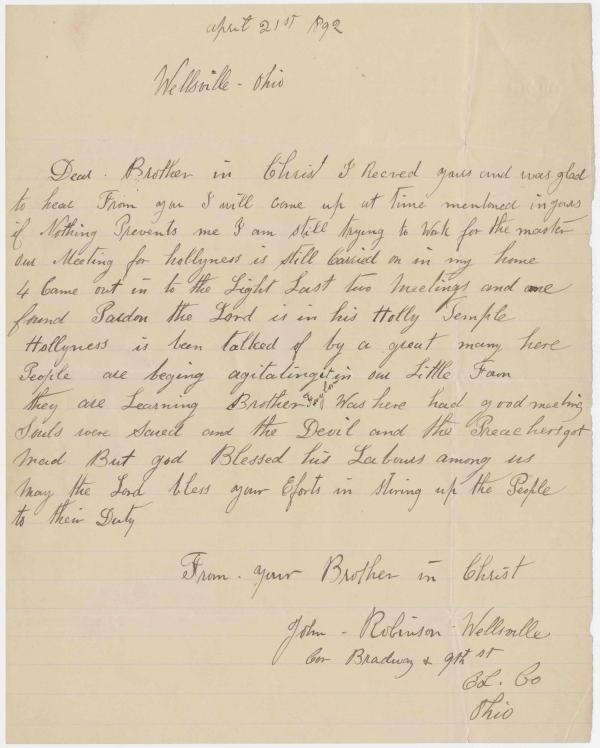 april 21st 1892
Wellsville - Ohio
Dear - Brother in Christ I Recved yours and was glad
to hear From you I will come up at time mentoned in yours
if Nothing Prevents me I am still trying to Work for the master
our Meeting for hollyness is still Carried on in my home
4 Came out in to the Light Last two Meetings and one
found Pardon the Lord is in his Holly Temple
Hollyness is been talked of by a great many here
People are beging agitating it in our Little Town
they are Learning Brother Taylor Was here had good meeting
Souls were Saved and the Devil and the Preachers got
mad But god Blessed his Labours among us
may the Lord bless your Eforts in stiring up the People
to their Duty
From - your Brother in Christ
John - Robinson - Wellsville
Cor Bradway & 9th st
CL. Co
Ohio